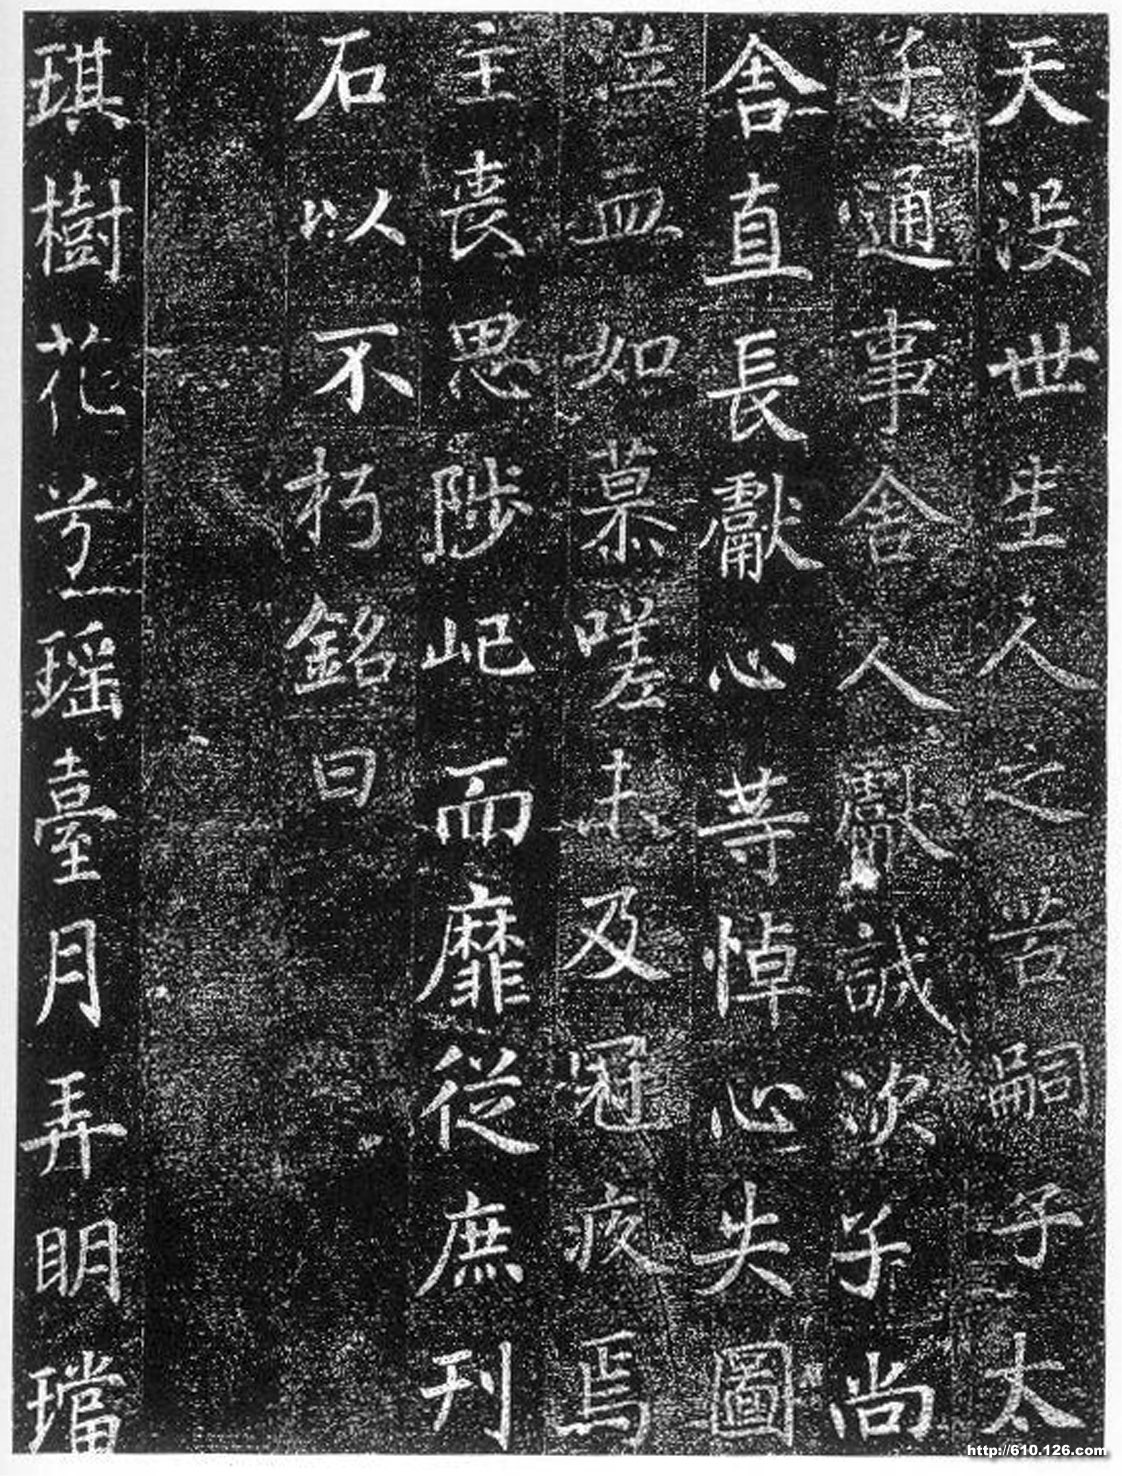 天没世生人之苦嗣子太
子通事舍人獻誠次子尚
舍直長獻心等悼心失圖
泣血如慕嗟未及冠疚焉
主喪思陟屺而靡從庶刊
石以不朽銘曰
琪樹花兮瑶臺月弄眀璫
http://610.126.com